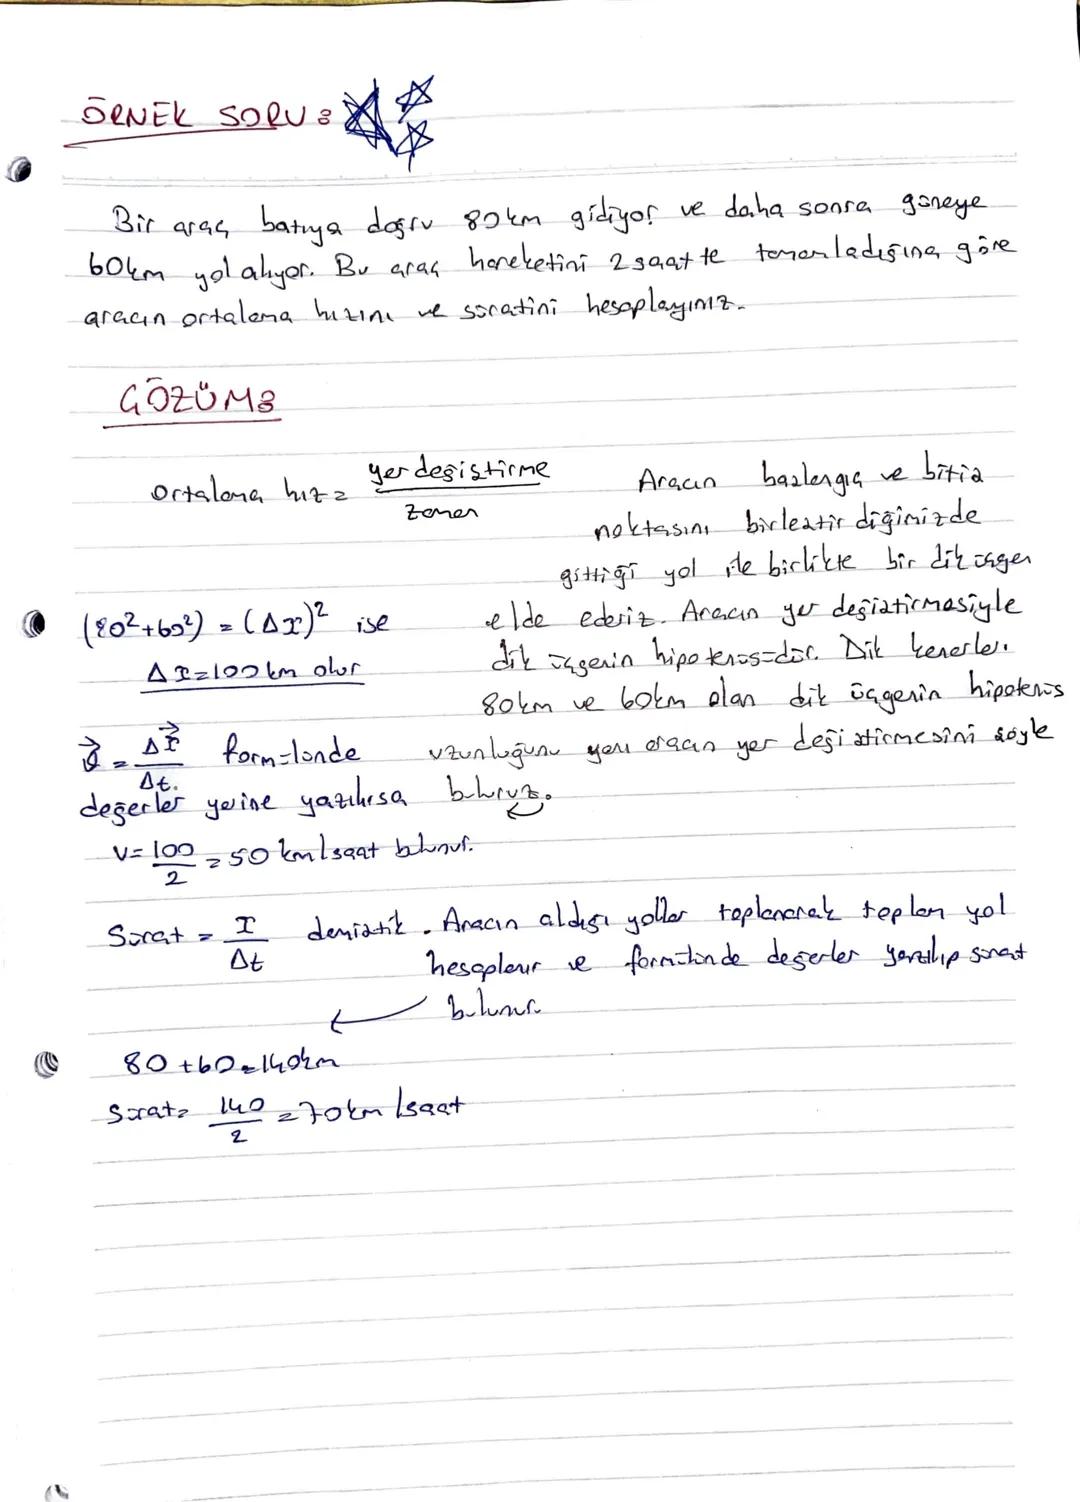 ÖRNEK SORU:
Bir araç batıya doğru 80km gidiyor ve daha sonra güneye
60km yol alıyor. Bu araç hareketini 2 saatte tamamladığına göre
aracın ortalama hızını ve süratini hesaplayınız.
ÇÖZÜM:
Ortalama hız = yer değiştirme / zaman
Aracın başlangıç ve bitiş
noktasını birleştirdiğimizde
gittiği yol ile birlikte bir dik üçgen
elde ederiz. Aracın yer değiştirmesiyle
dik üçgenin hipotenüsüdür. Dik kenarları
80km ve 60km olan dik üçgenin hipotenüs
uzunluğunu yani aracın yer değiştirmesini şöyle
buluruz.
(80²+60²) = (Δx)² ise
Δx=100km olur
v⃗ = Δx⃗ / Δt. formülünde
değerler yerine yazılırsa
V= 100/2 = 50 km/saat bulunur.
Sürat = X/Δt demiştik. Aracın aldığı yollar toplanarak toplam yol
hesaplanır ve formülünde değerler yazılıp sürat
bulunur.
80+60=140km
Sürat= 140/2 =70km/saat